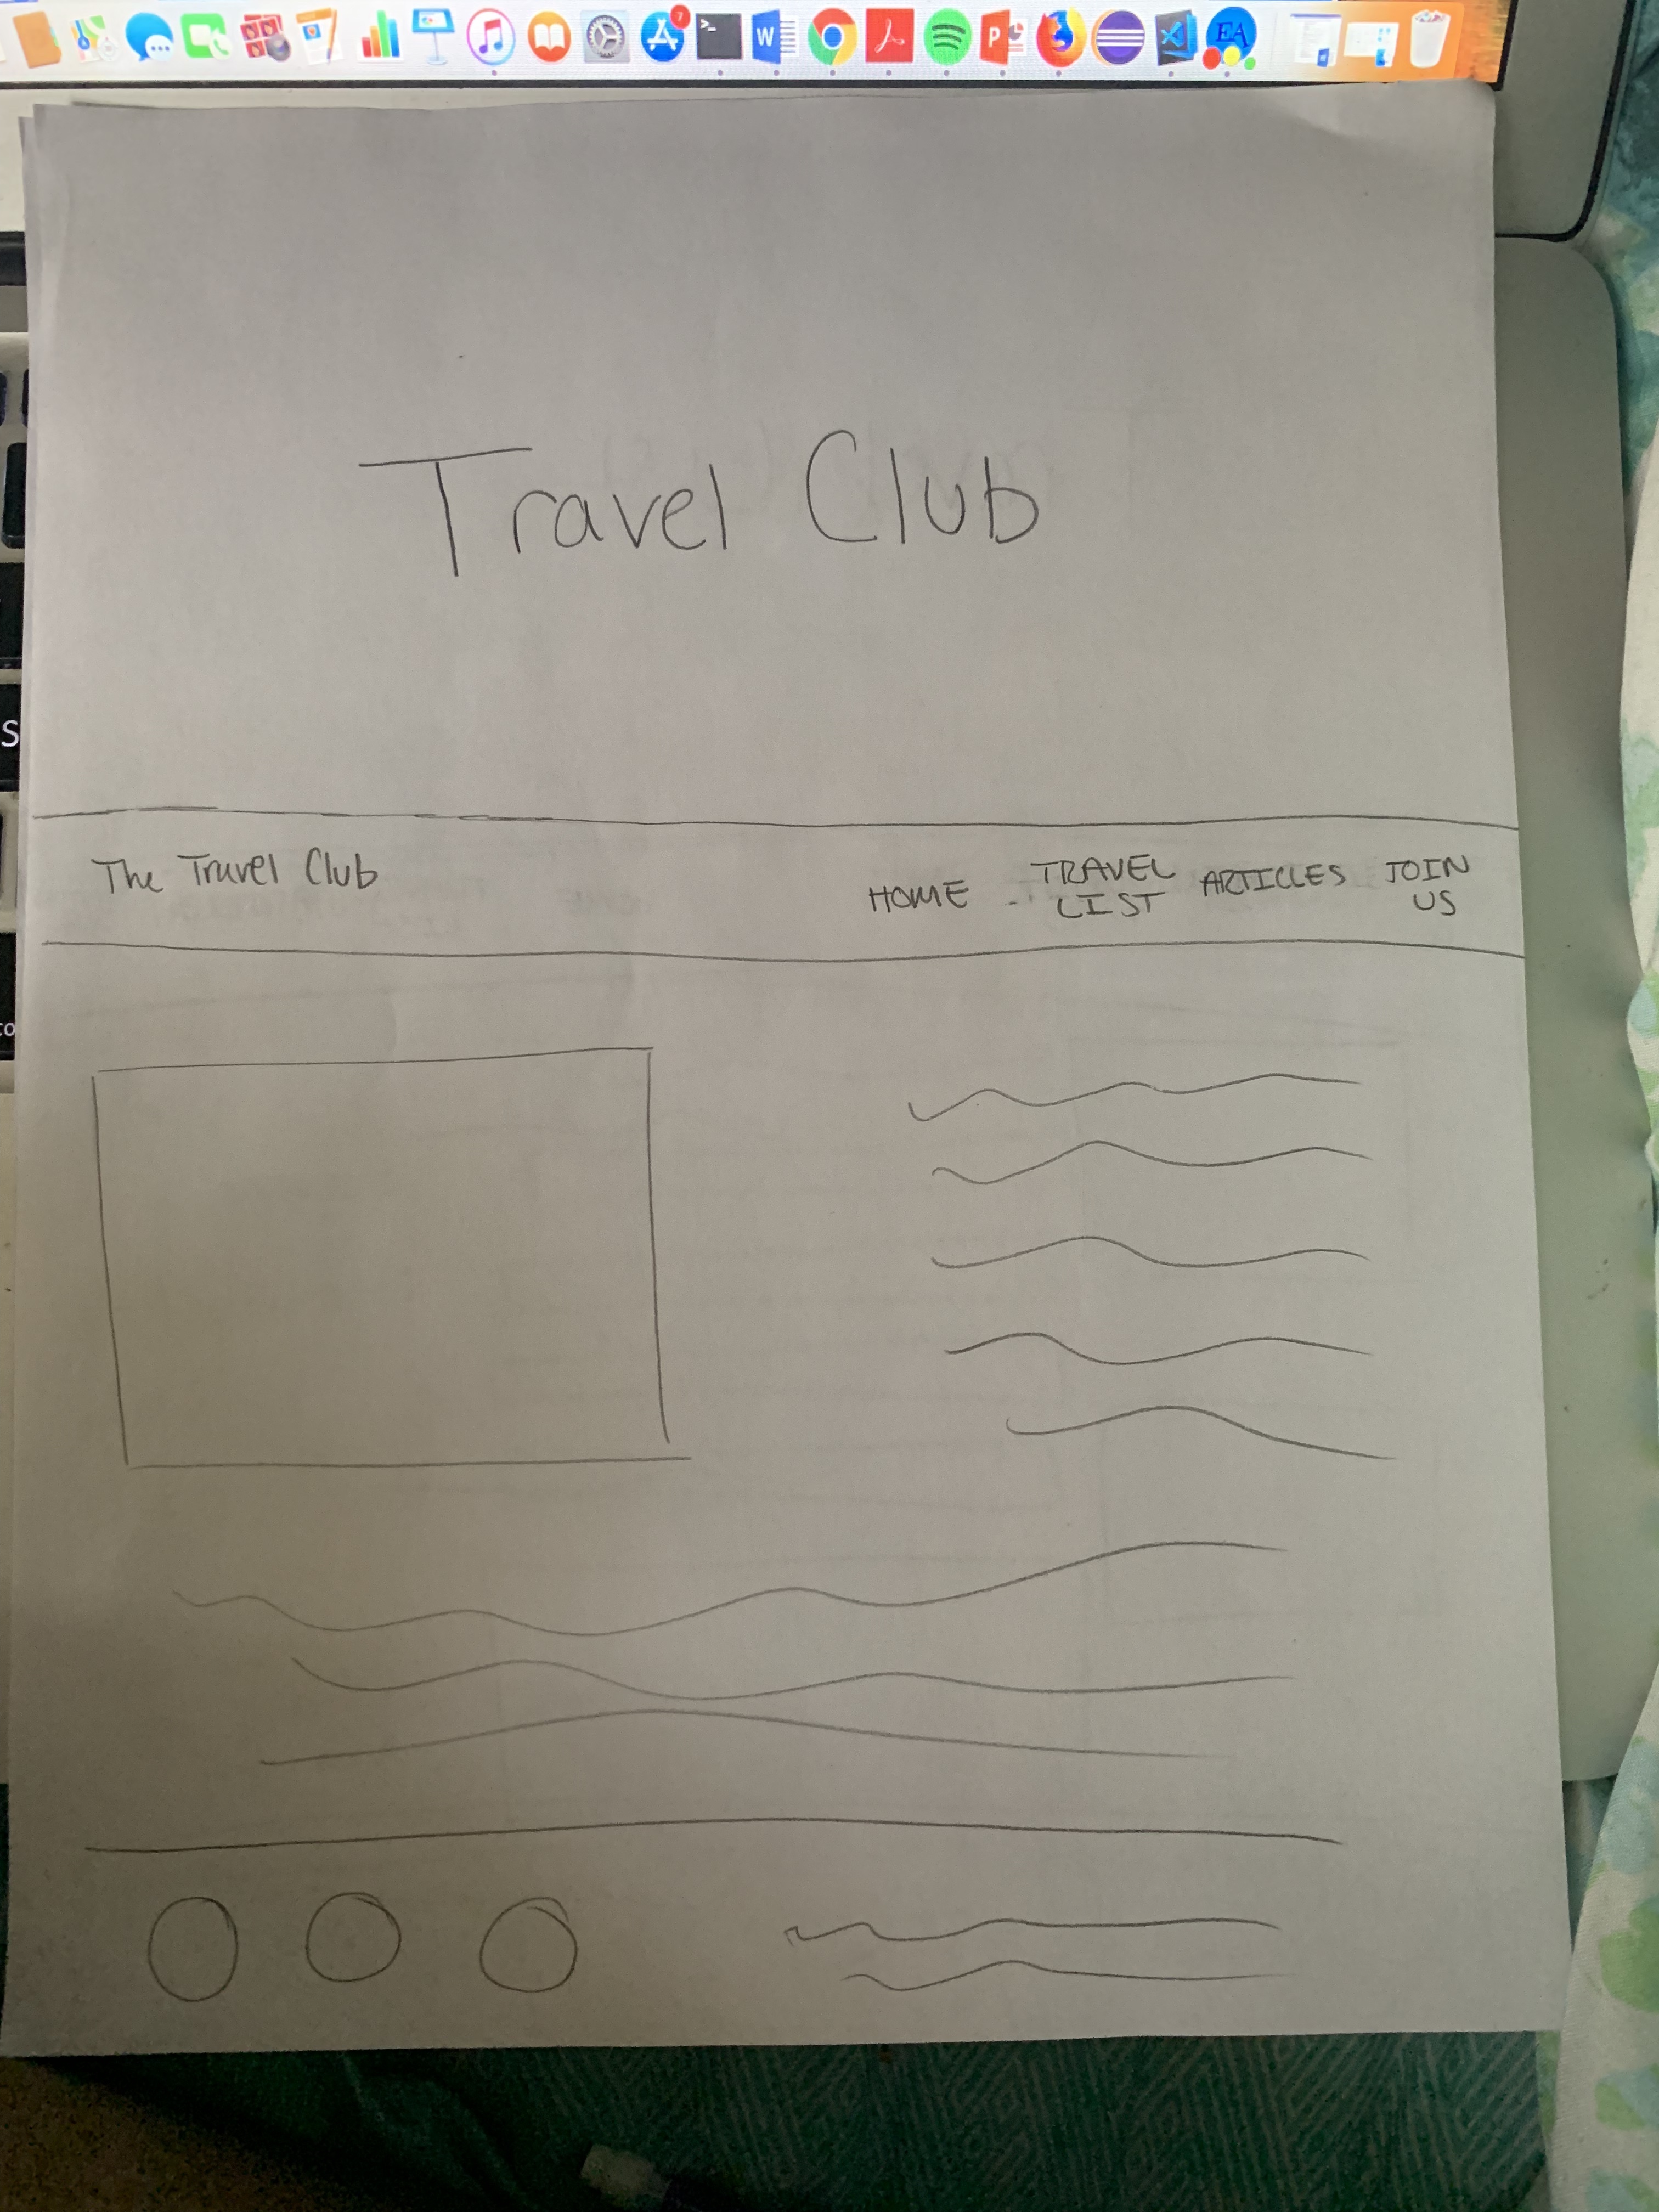 7
>_
W
P
EA
Travel Club
S
The Travel Club
HOME TRAVEL LIST ARTICLES JOIN US